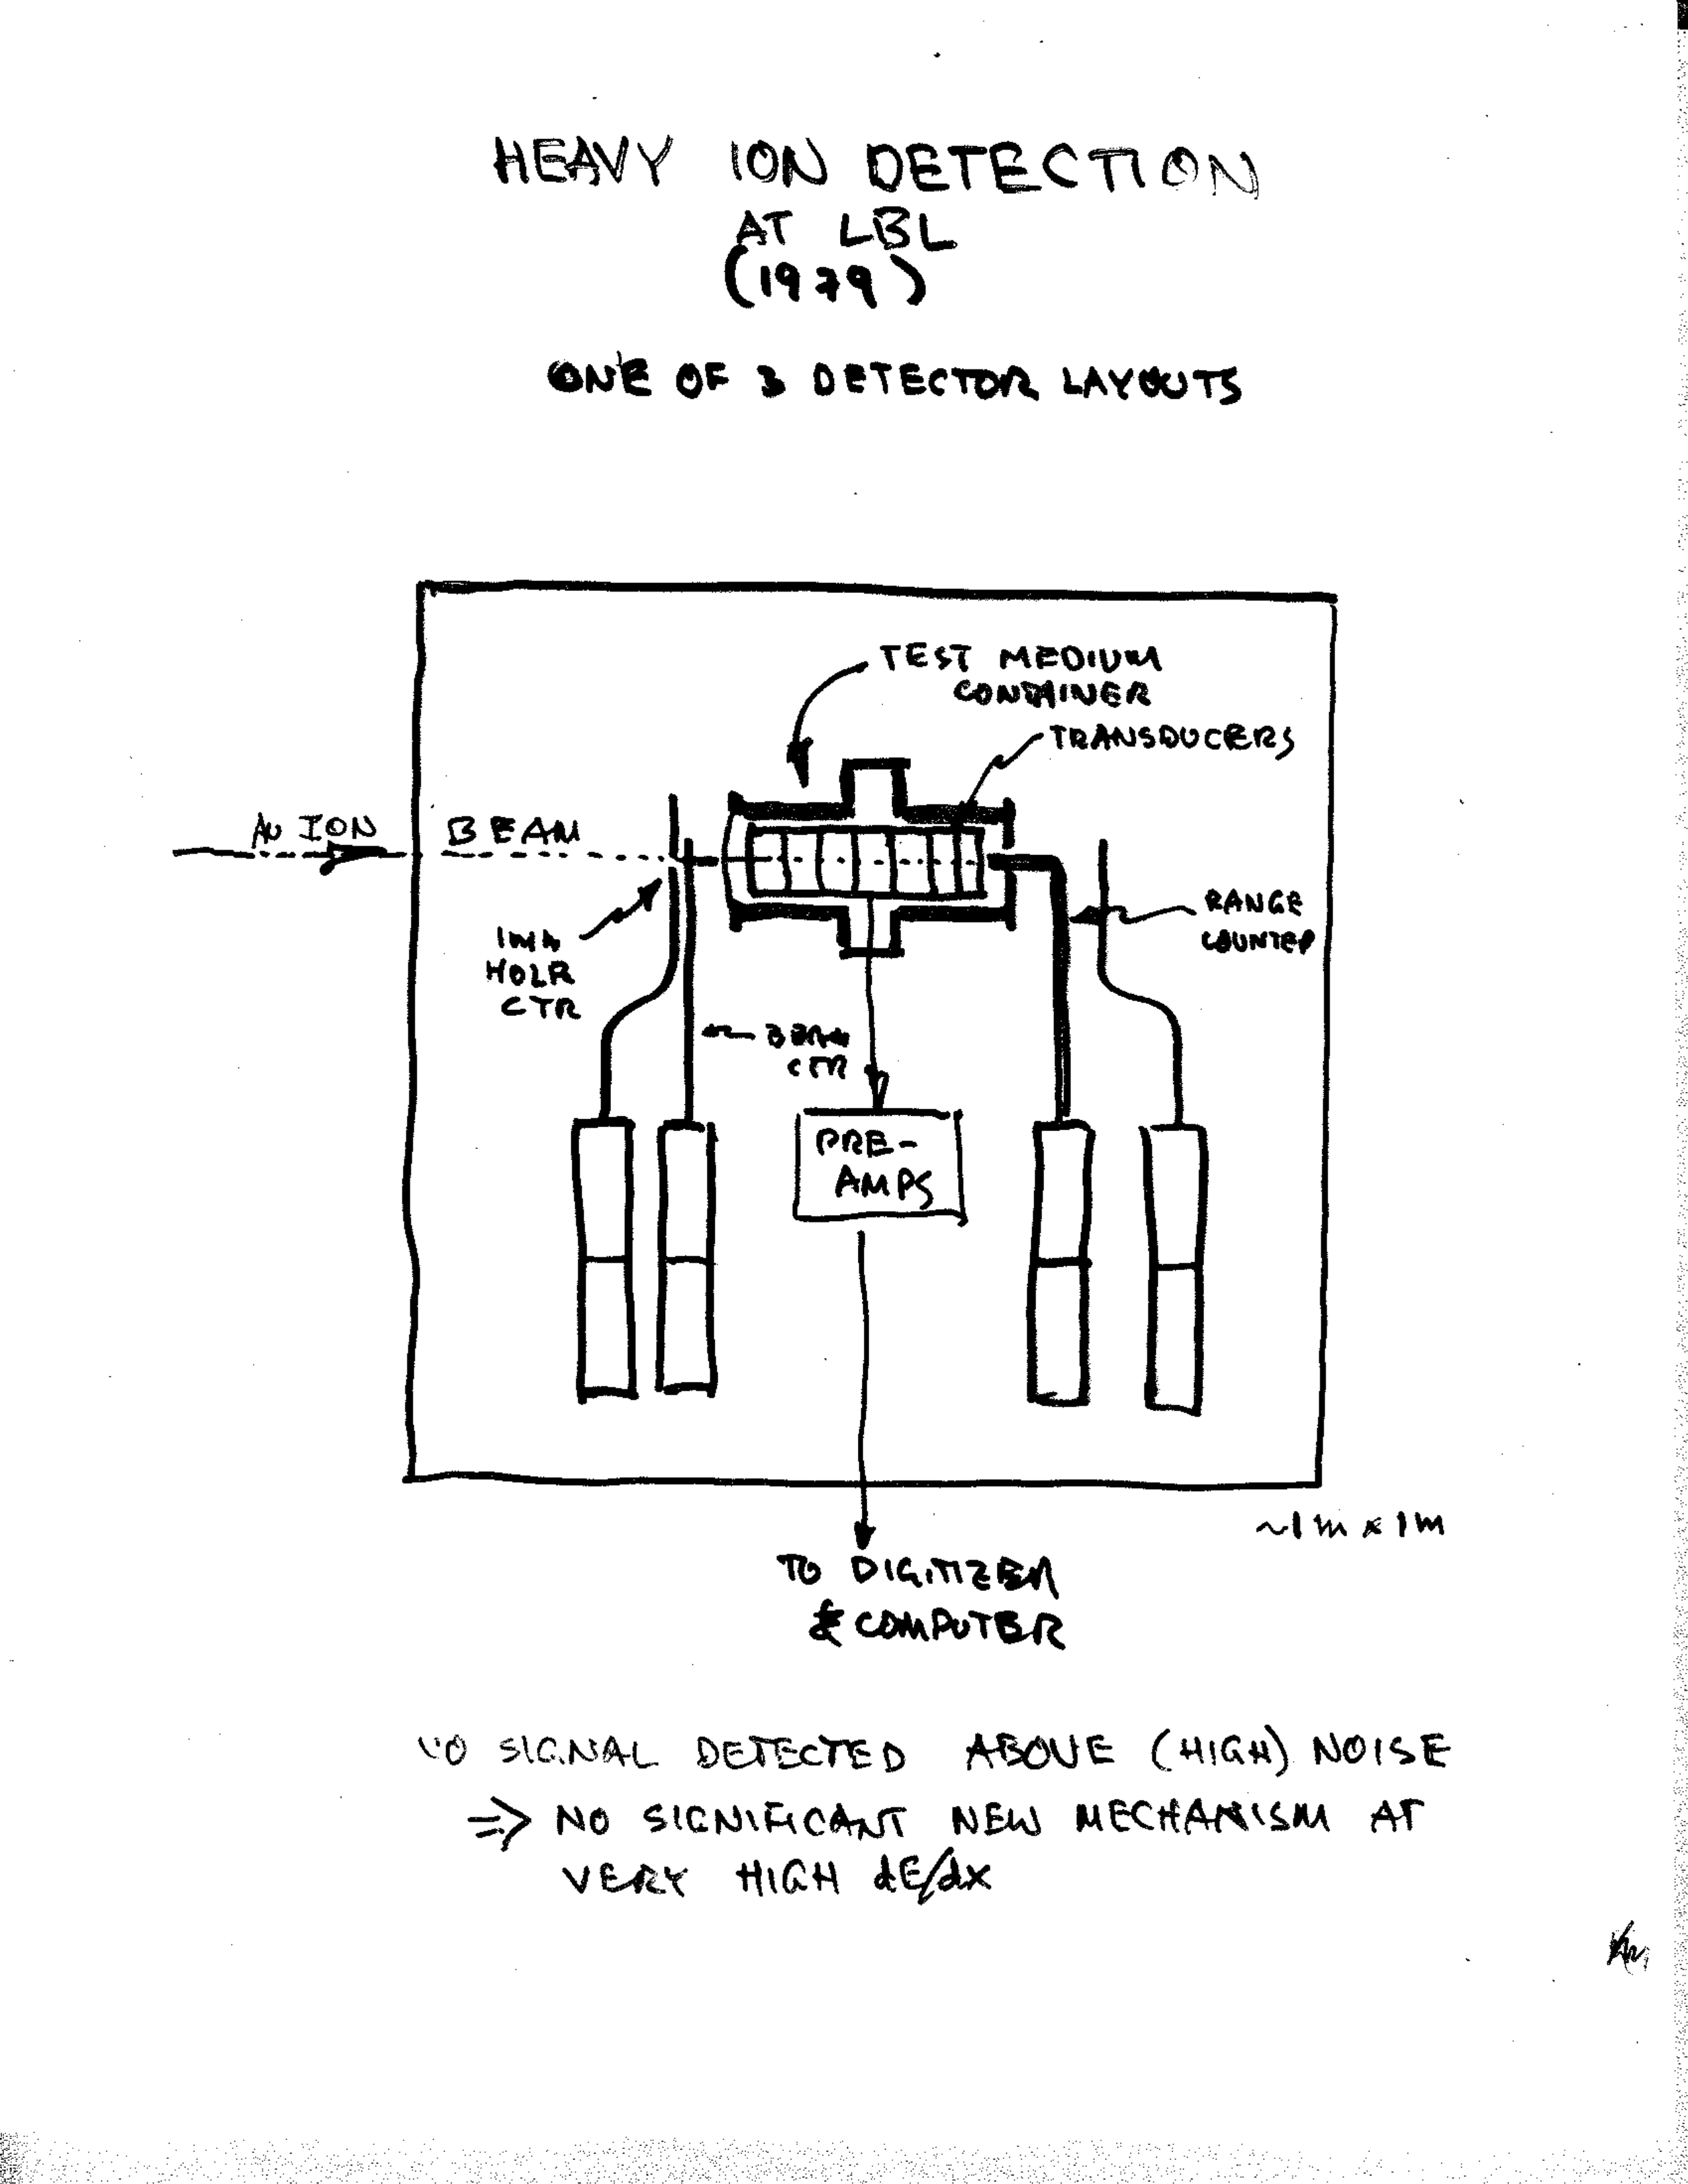 HEAVY ION DETECTION
AT LBL
(1979)
ONE OF 3 DETECTOR LAYOUTS
TEST MEDIUM
CONTAINER
TRANSDUCERS
ION BEAM
RANGE
COUNTER
HOLE
CTR
BEAM
CTR
PRE-
AMPS
~1m x 1m
TO DIGITIZER
& COMPUTER
NO SIGNAL DETECTED ABOVE (HIGH) NOISE
=> NO SIGNIFICANT NEW MECHANISM AT
VERY HIGH dE/dx